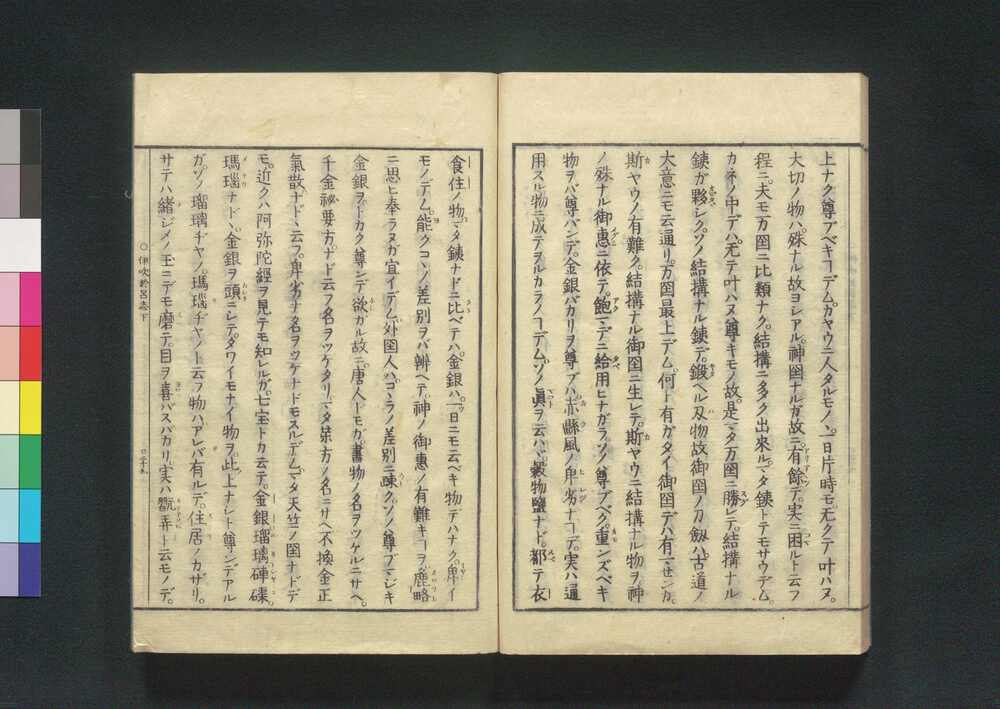 上ナク尊ブベキヿデム。ガヤウニ人タルモノ。一日片時モ。无クテ叶ハヌ。
大切ノ物ハ。殊ナル故ヨシアル。神国ナルガ故ニ。有餘デ。実ニ困ルト云フ
程ニ。夫モ万国ニ比類ナク。結構ニ多ク出來ル。マタ銕トテモサウデム。
カネノ中デハ。无テ叶ハヌ尊キモノ故。是マタ万国ニ勝レテ。結構ナル
銕ガ夥シク。ソノ結構ナル銕デ。鍛ヘル刄物故。御国ノ刀劔ハ。古道ノ
大意ニモ云通リ。万国最上デム。何ト有ガタイ御国デハ有マセンカ。
斯ヤウノ有難ク。結構ナル御国ニ生レテ。斯ヤウニ結構ナル物ヲ。神
ノ殊ナル御恵ニ依テ。飽マデニ給用ヒナガラ。ソノ尊ブベク。重ンズベキ
物ヲバ尊バンデ。金銀バカリヲ尊ブハ。赤縣風ノ卑劣ナヿデ。実ハ通
用スル物ニ成テヲルカラノヿデム。ソノ眞ヲ云ハヾ。穀物鹽ナド。都テ衣
食住ノ物。マタ銕ナドニ比ベテハ。金銀ハ。一日ニモ云ベキ物デハナク。卑イ
モノデム。能クコヽノ差別ヲバ辨ヘテ。神ノ御恵ノ有難キヿヲ麁略
ニ思ヒ奉ラヌガ宜イデム。外国人ハ。コヽラノ差別ニ疎ク。ソノ尊ブマジキ
金銀ヲ。トカク尊ンデ欲ガル故ニ。唐人ドモガ。書物ノ名ヲツケルニサヘ。
千金祕要方。ナド云フ名ヲツケタリ。マタ藥方ノ名ニサヘ不換金正
氣散ナドヽ云フ。卑劣ナ名ヲツケナドモスルデム。マタ天竺ノ国ナドデ
モ。近クハ阿弥陀經ヲ見テモ知レルガ。七宝トカ云テ。金銀瑠璃硨磲。
瑪瑙ナドヽ。金銀ヲ頭ニシテ。タワイモナイ物ヲ。此上ナシト尊ンデアル
ガ。ソノ瑠璃ヂヤノ。瑪瑙ヂヤノト云フ物ハ。アレバ有ルデ。住居ノカザリ。
サテハ緒ジメノ玉ニデモ磨テ。目ヲ喜バスバカリ。実ハ翫弄ト云モノデ。
伊吹於呂志下